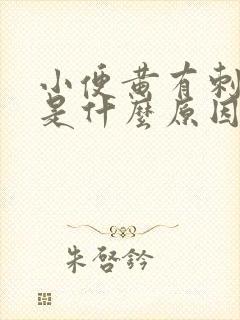 小便黄有刺
是什麼原因
朱啓鈐